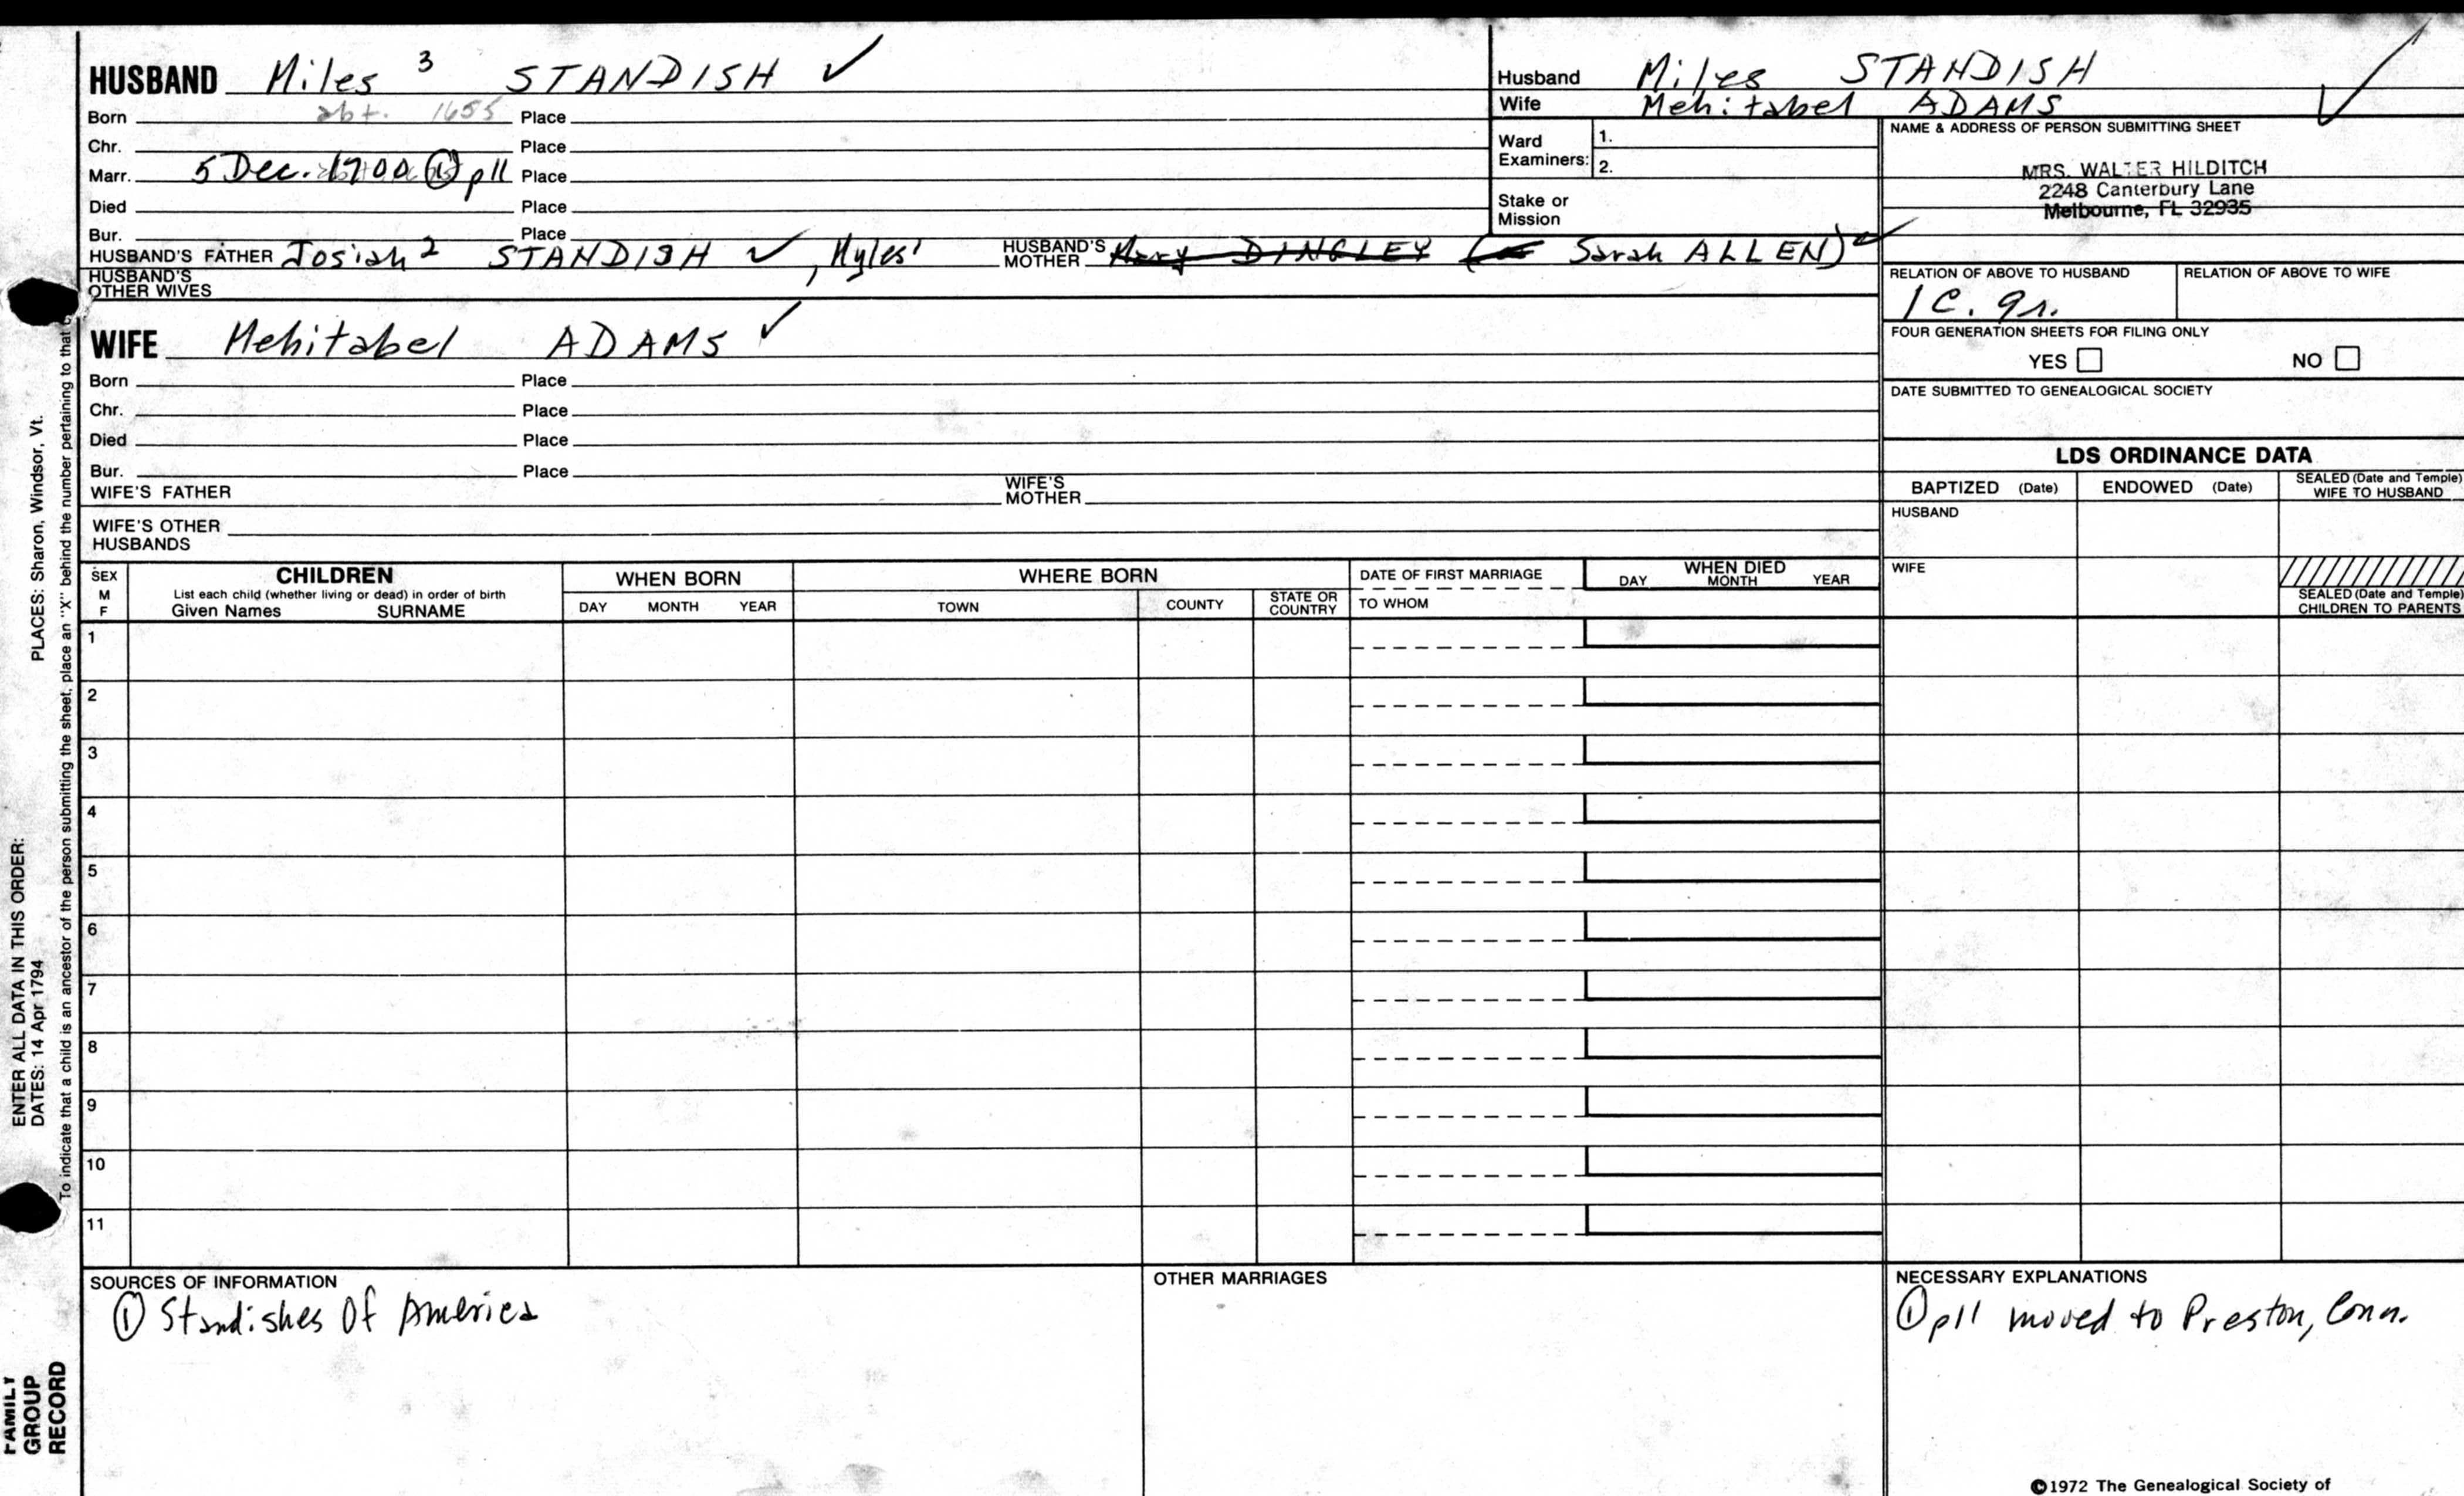 HUSBAND Miles 3 STANDISH ✓
Born abt. 1655 Place
Chr. Place
Marr. 5 Dec. 1700 ① p11 Place
Died Place
Bur. Place
HUSBAND'S FATHER Josiah 2 STANDISH ✓, Myles' HUSBAND'S MOTHER Mary DINGLEY ( Sarah ALLEN) ✓
HUSBAND'S OTHER WIVES
WIFE Mehitabel ADAMS ✓
Born Place
Chr. Place
Died Place
Bur. Place
WIFE'S FATHER WIFE'S MOTHER
WIFE'S OTHER HUSBANDS
Husband Miles STANDISH
Wife Mehitabel ADAMS ✓
Ward Examiners: 1.
2.
Stake or Mission
NAME & ADDRESS OF PERSON SUBMITTING SHEET
MRS. WALTER HILDITCH
2248 Canterbury Lane
Melbourne, FL 32935
RELATION OF ABOVE TO HUSBAND RELATION OF ABOVE TO WIFE
1 C. gr.
FOUR GENERATION SHEETS FOR FILING ONLY
YES NO
DATE SUBMITTED TO GENEALOGICAL SOCIETY
LDS ORDINANCE DATA
BAPTIZED (Date) ENDOWED (Date) SEALED (Date and Temple) WIFE TO HUSBAND
HUSBAND
WIFE
SEALED (Date and Temple) CHILDREN TO PARENTS
SEX M F CHILDREN WHEN BORN WHERE BORN DATE OF FIRST MARRIAGE WHEN DIED
List each child (whether living or dead) in order of birth
Given Names SURNAME DAY MONTH YEAR TOWN COUNTY STATE OR COUNTRY TO WHOM DAY MONTH YEAR
1
2
3
4
5
6
7
8
9
10
11
SOURCES OF INFORMATION
① Standishes Of America
OTHER MARRIAGES
NECESSARY EXPLANATIONS
① p11 moved to Preston, Conn.
©1972 The Genealogical Society of
ENTER ALL DATA IN THIS ORDER:
DATES: 14 Apr 1794 PLACES: Sharon, Windsor, Vt.
To indicate that a child is an ancestor of the person submitting the sheet, place an "X" behind the number pertaining to that
FAMILY GROUP RECORD